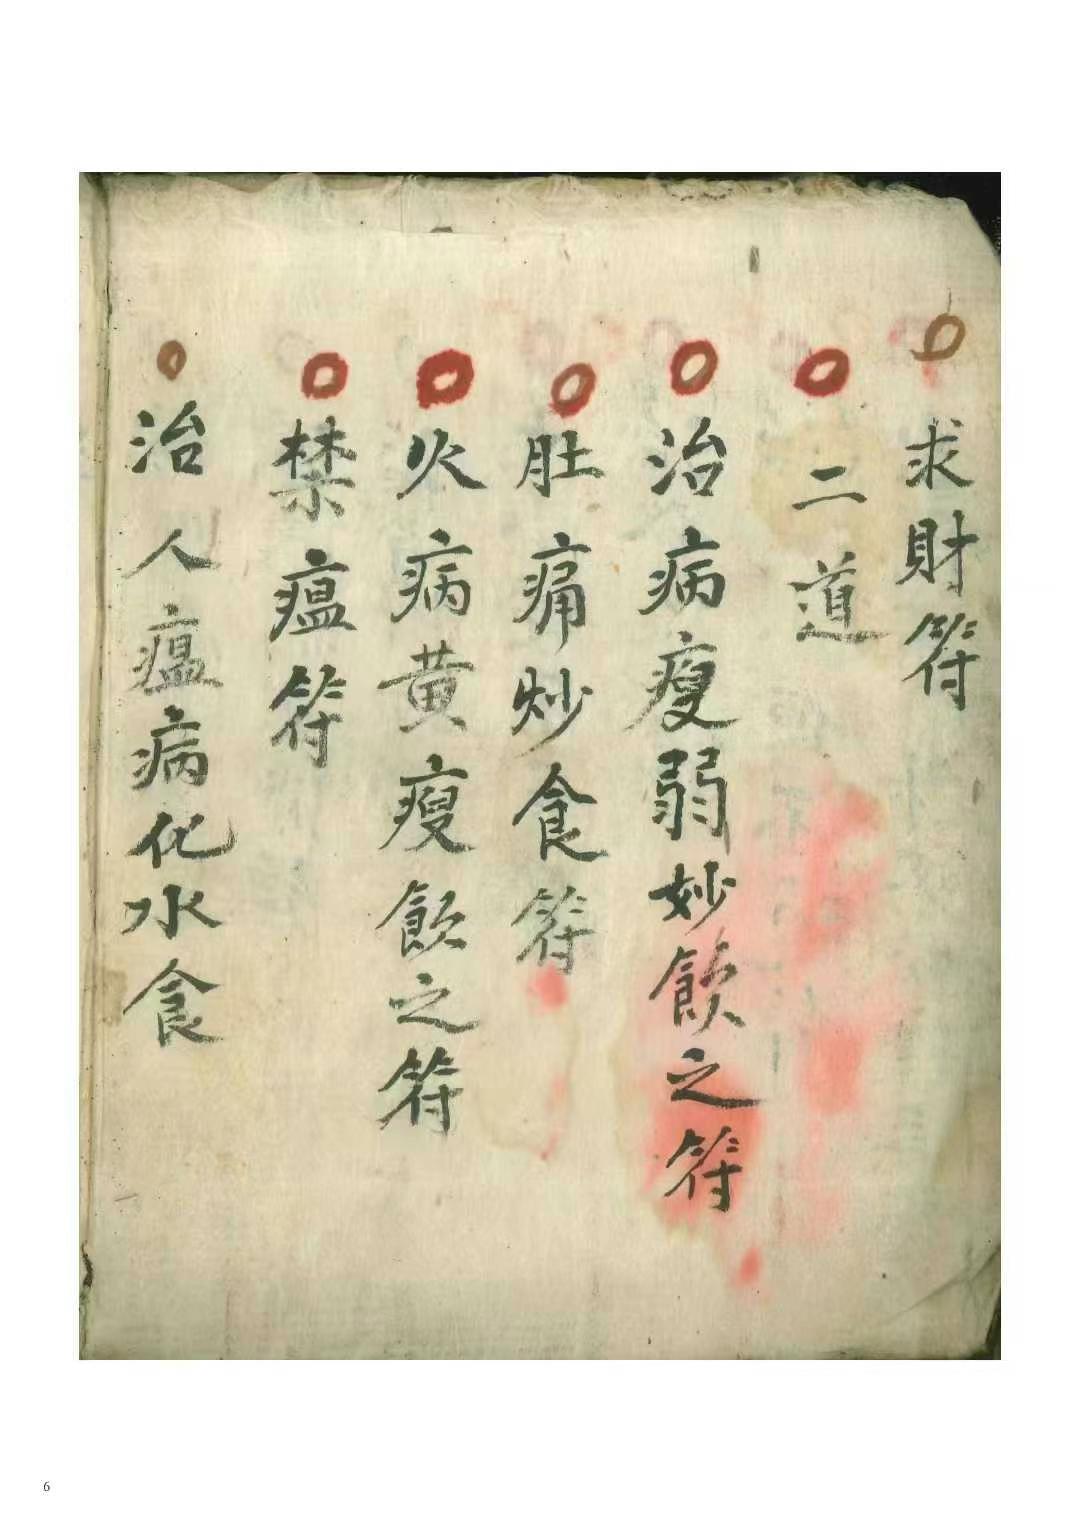 求財符
二道
治病瘦弱妙飲之符
肚痛炒食符
火病黄瘦飲之符
禁瘟符
治人瘟病化水食
6